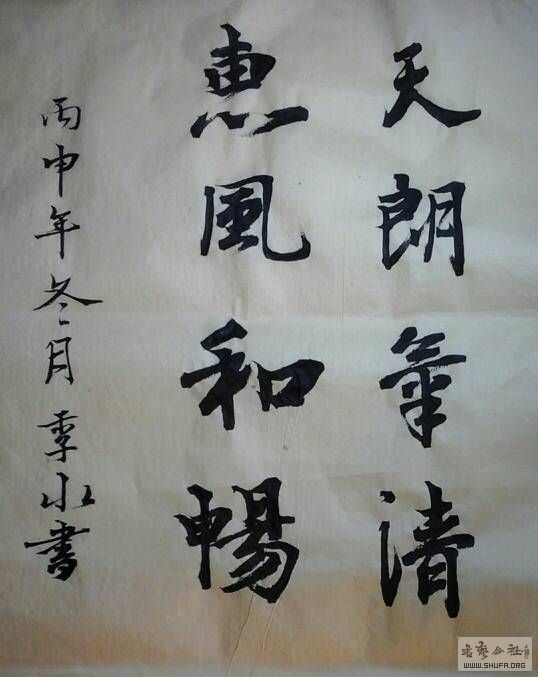 天朗氣清
惠風和暢
丙申年冬月季水書
书艺公社
WWW.SHUFA.ORG